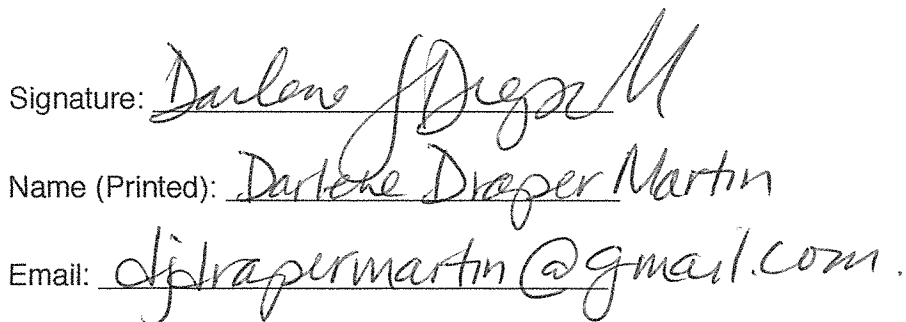 Signature: Darlene J Draper M
Name (Printed): Darlene Draper Martin
Email: djdrapermartin@gmail.com.